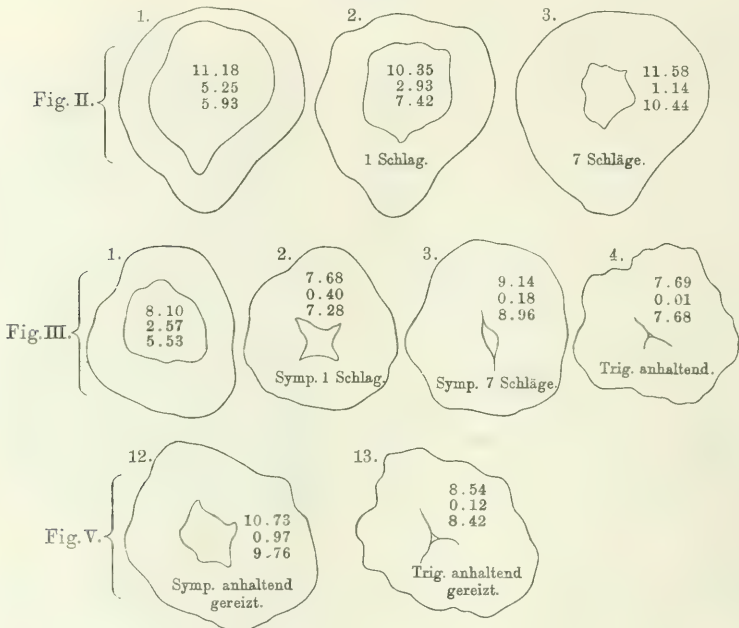 Fig. II.
1.
11.18
5.25
5.93
2.
10.35
2.93
7.42
1 Schlag.
3.
11.58
1.14
10.44
7 Schläge.
Fig. III.
1.
8.10
2.57
5.53
2.
7.68
0.40
7.28
Symp. 1 Schlag.
3.
9.14
0.18
8.96
Symp. 7 Schläge.
4.
7.69
0.01
7.68
Trig. anhaltend.
Fig. V.
12.
10.73
0.97
9.76
Symp. anhaltend
gereizt.
13.
8.54
0.12
8.42
Trig. anhaltend
gereizt.